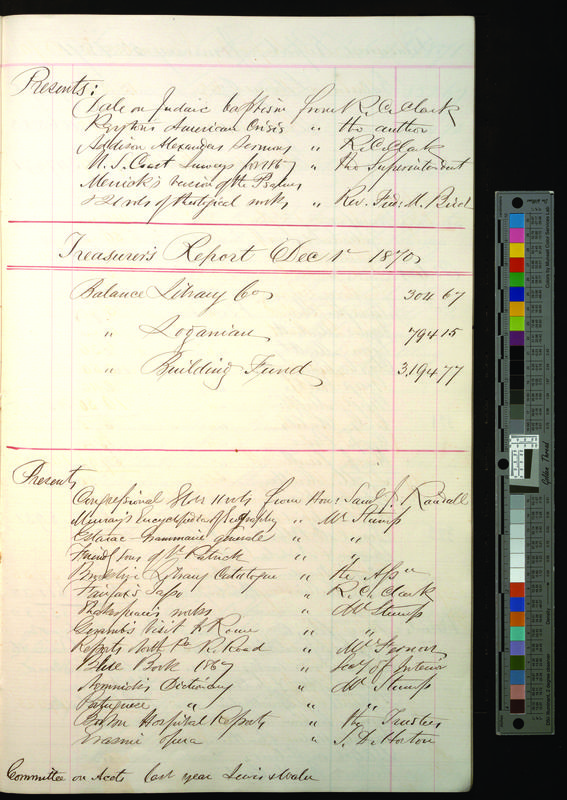 Presents:
Dale on Judaic baptism from R. C. Clark
American Crisis " the author
Addison Alexanders Sermons " R. C. Clark
U. S. Coast Surveys for 1867 " the Superintendent
Merrick's version of the Psalms
& 21 vols of theological works " Rev. Fred: M. Bird
Treasurer's Report Dec 1st 1870
Balance Library Co 304 67
" Loganian 794 15
" Building Fund 3.194 77
Presents
Congressional Globe 11 vols from Hon: Saml J. Randall
Murray's Encyclopedia of Geography " Mr Stump
Grammaire générale " "
Friendly Sons of St. Patrick " "
Brooklyn Library Catalogue " the Assn
Fairfax's Tasso " R. C. Clark
Shakespeare's works " Mr Stump
Visit to Rome " "
Reports North Pa R. Road " Mr
Blue Book 1867 " Secy of Interior
Dictionary " Mr Stump
Portuguese " " "
Boston Hospital Reports " the Trustees
Erasmi opera " S. D. Horton
Committee on Accts last year Lewis &